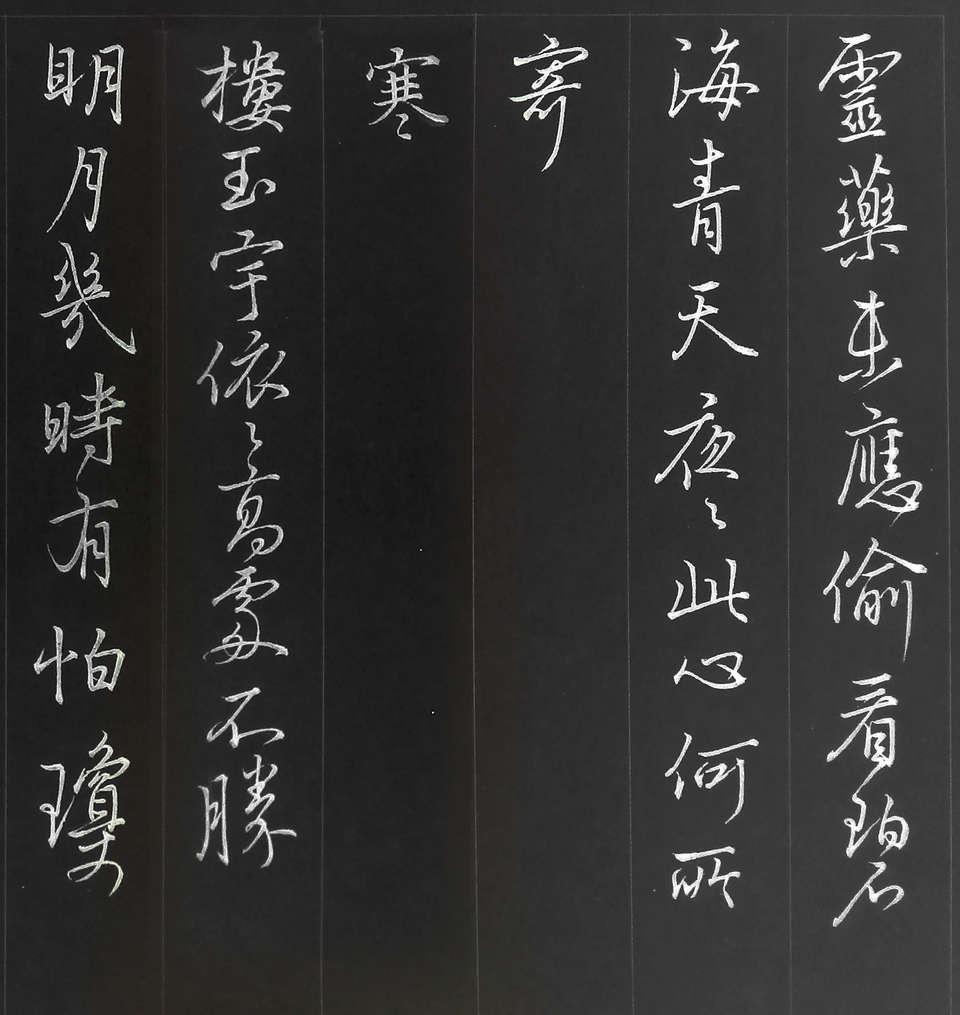 靈藥未應偷看碧
海青天夜〻此心何所
寄
明月幾時有怕瓊
樓玉宇依〻高處不勝
寒